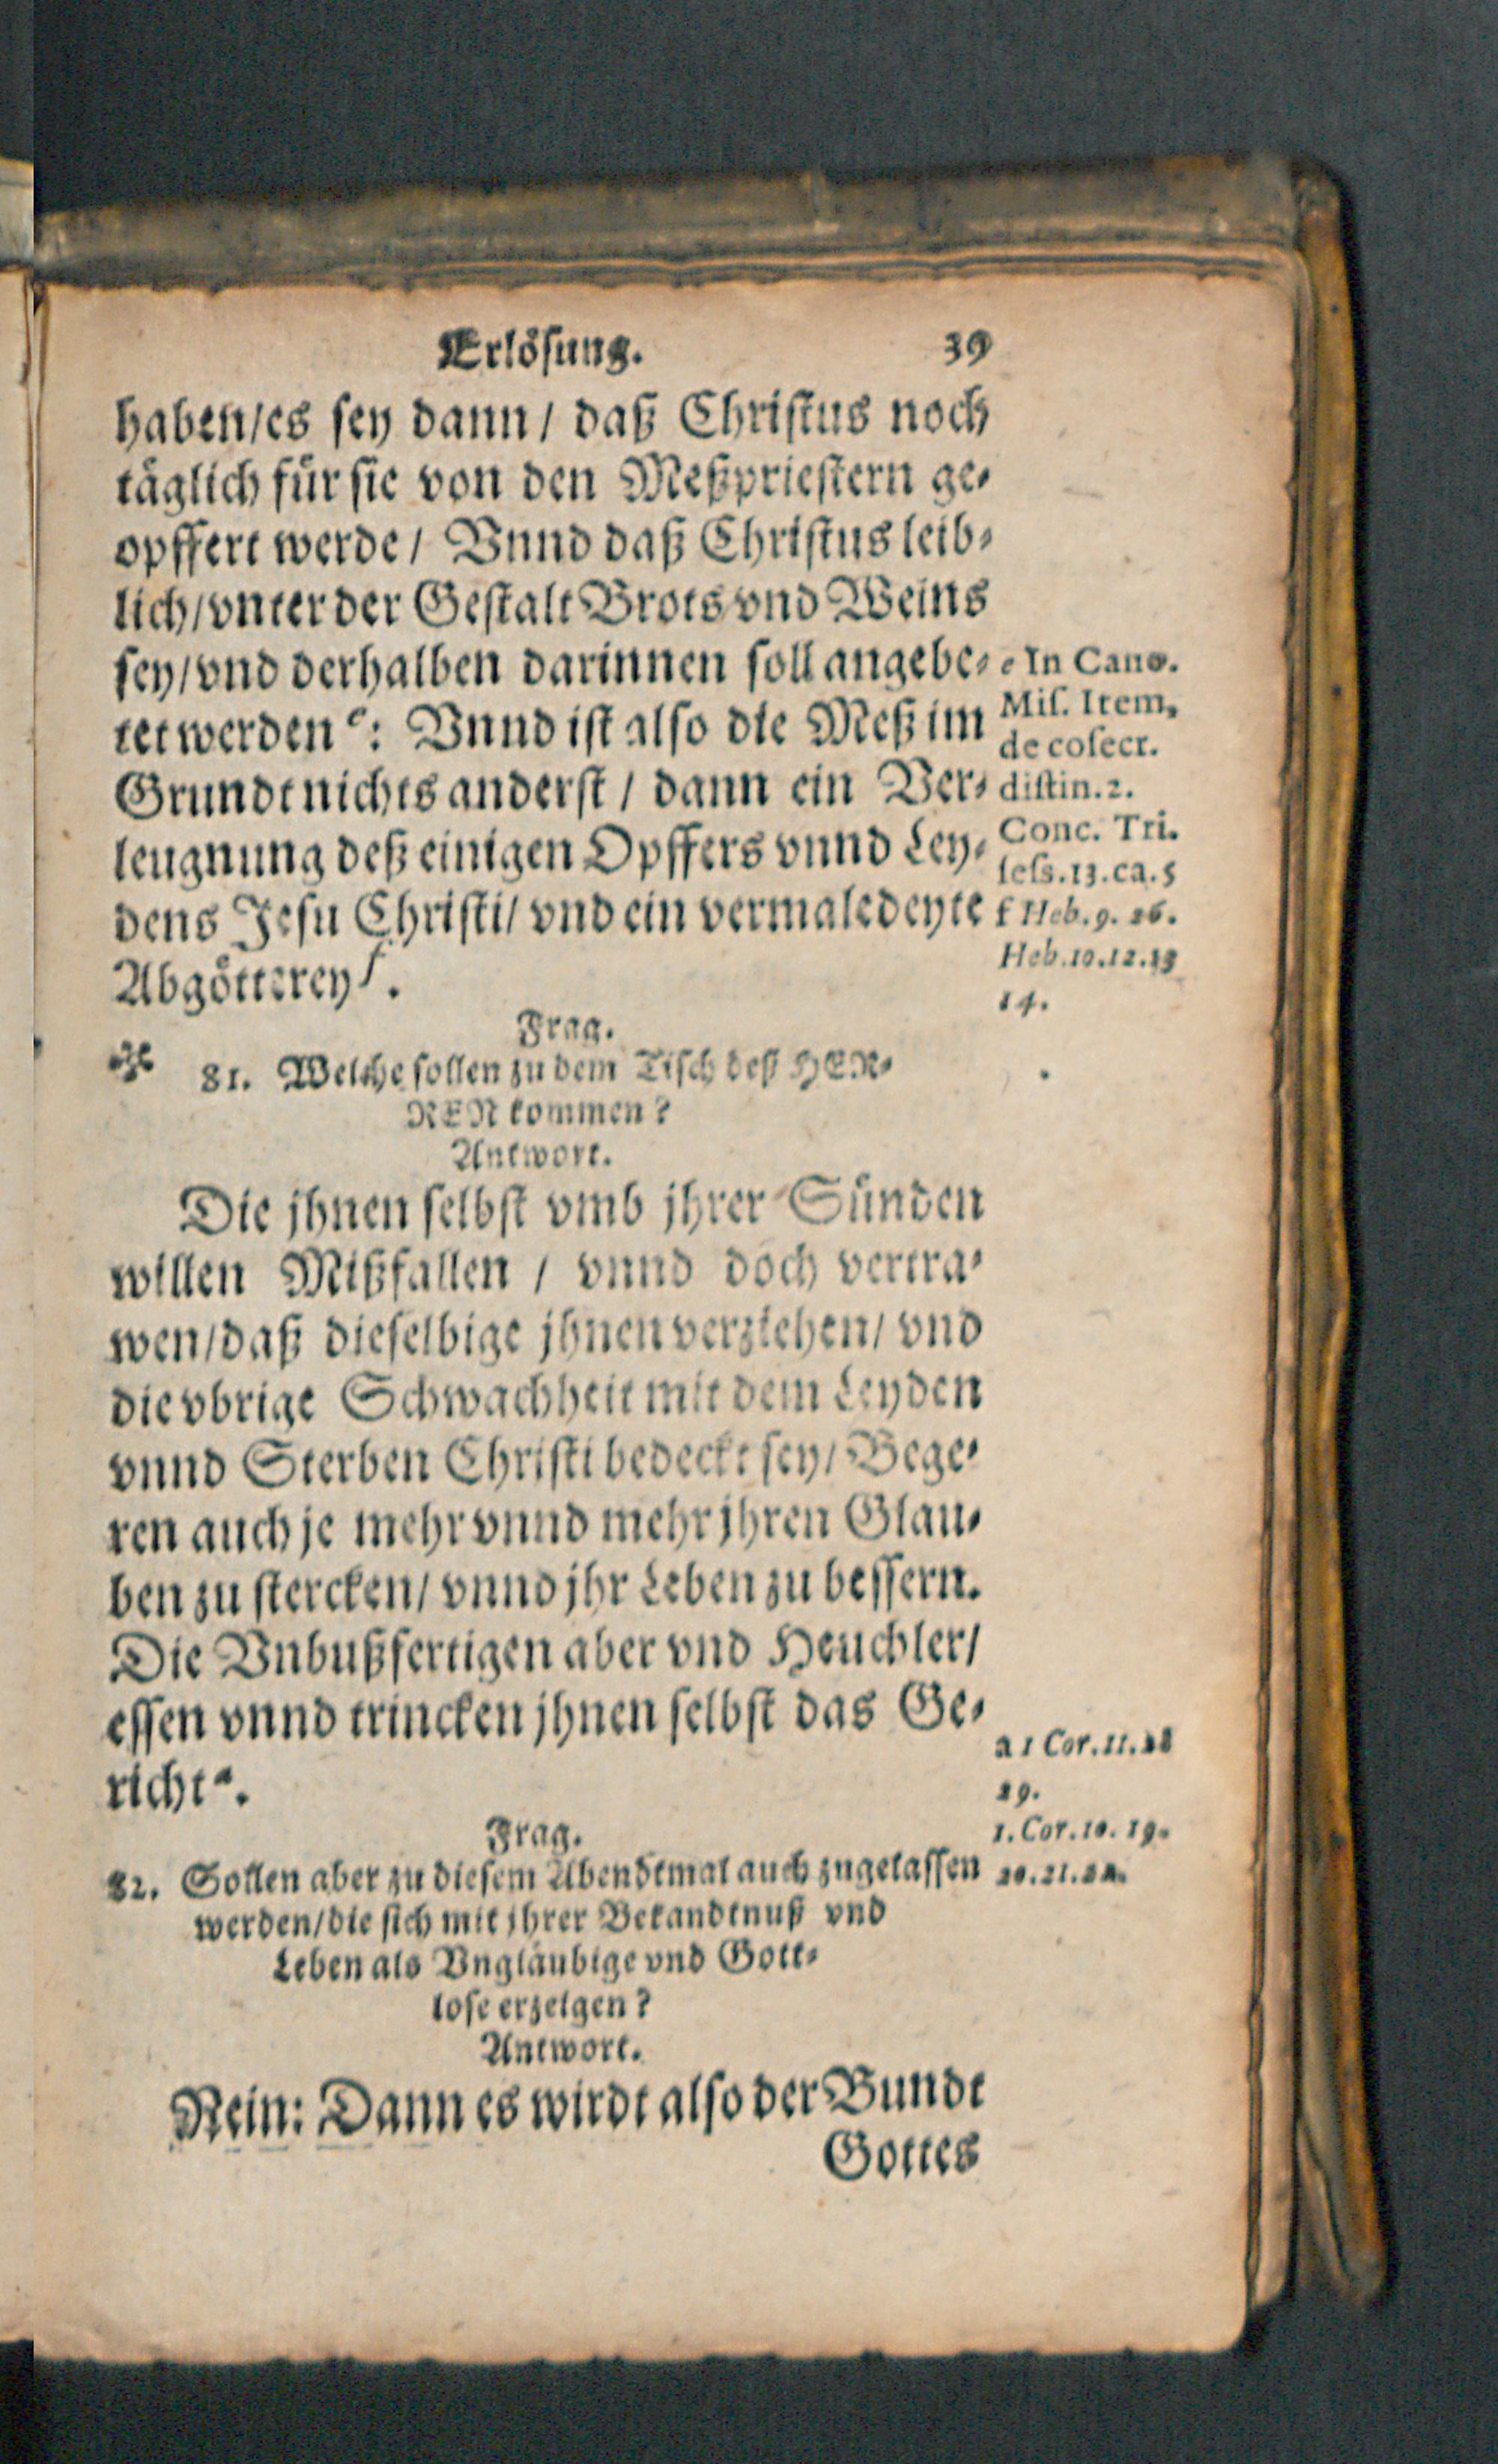 Erlösung. 39
haben/es sey dann/ daß Christus noch
täglich für sie von den Meßpriestern ge-
opffert werde/ Vnnd daß Christus leib-
lich/vnter der Gestalt Brots vnd Weins
sey/vnd derhalben darinnen soll angebe-
tet werden e: Vnnd ist also die Meß im
Grundt nichts anderst/ dann ein Ver-
leugnung deß einigen Opffers vnnd Ley-
dens Jesu Christi/ vnd ein vermaledeyte
Abgötterey f.
e In Cano.
Mis. Item,
de cosecr.
distin. 2.
Conc. Tri.
sess. 13. ca. 5
f Heb. 9. 26.
Heb. 10. 12. 13
14.
Frag.
* 81. Welche sollen zu dem Tisch deß HER-
REN kommen?
Antwort.
Die jhnen selbst vmb jhrer Sünden
willen Mißfallen/ vnnd doch vertra-
wen/daß dieselbige jhnen verziehen/ vnd
die vbrige Schwachheit mit dem Leyden
vnnd Sterben Christi bedeckt sey/ Bege-
ren auch je mehr vnnd mehr jhren Glau-
ben zu stercken/ vnnd jhr Leben zu bessern.
Die Vnbußfertigen aber vnd Heuchler/
essen vnnd trincken jhnen selbst das Ge-
richt a.
a 1 Cor. 11. 28
29.
1. Cor. 10. 19.
20. 21. 22.
Frag.
82. Sollen aber zu diesem Abendtmal auch zugelassen
werden/die sich mit jhrer Bekandtnuß vnd
Leben als Vngläubige vnd Gott-
lose erzeigen?
Antwort.
Nein: Dann es wirdt also der Bundt
Gottes